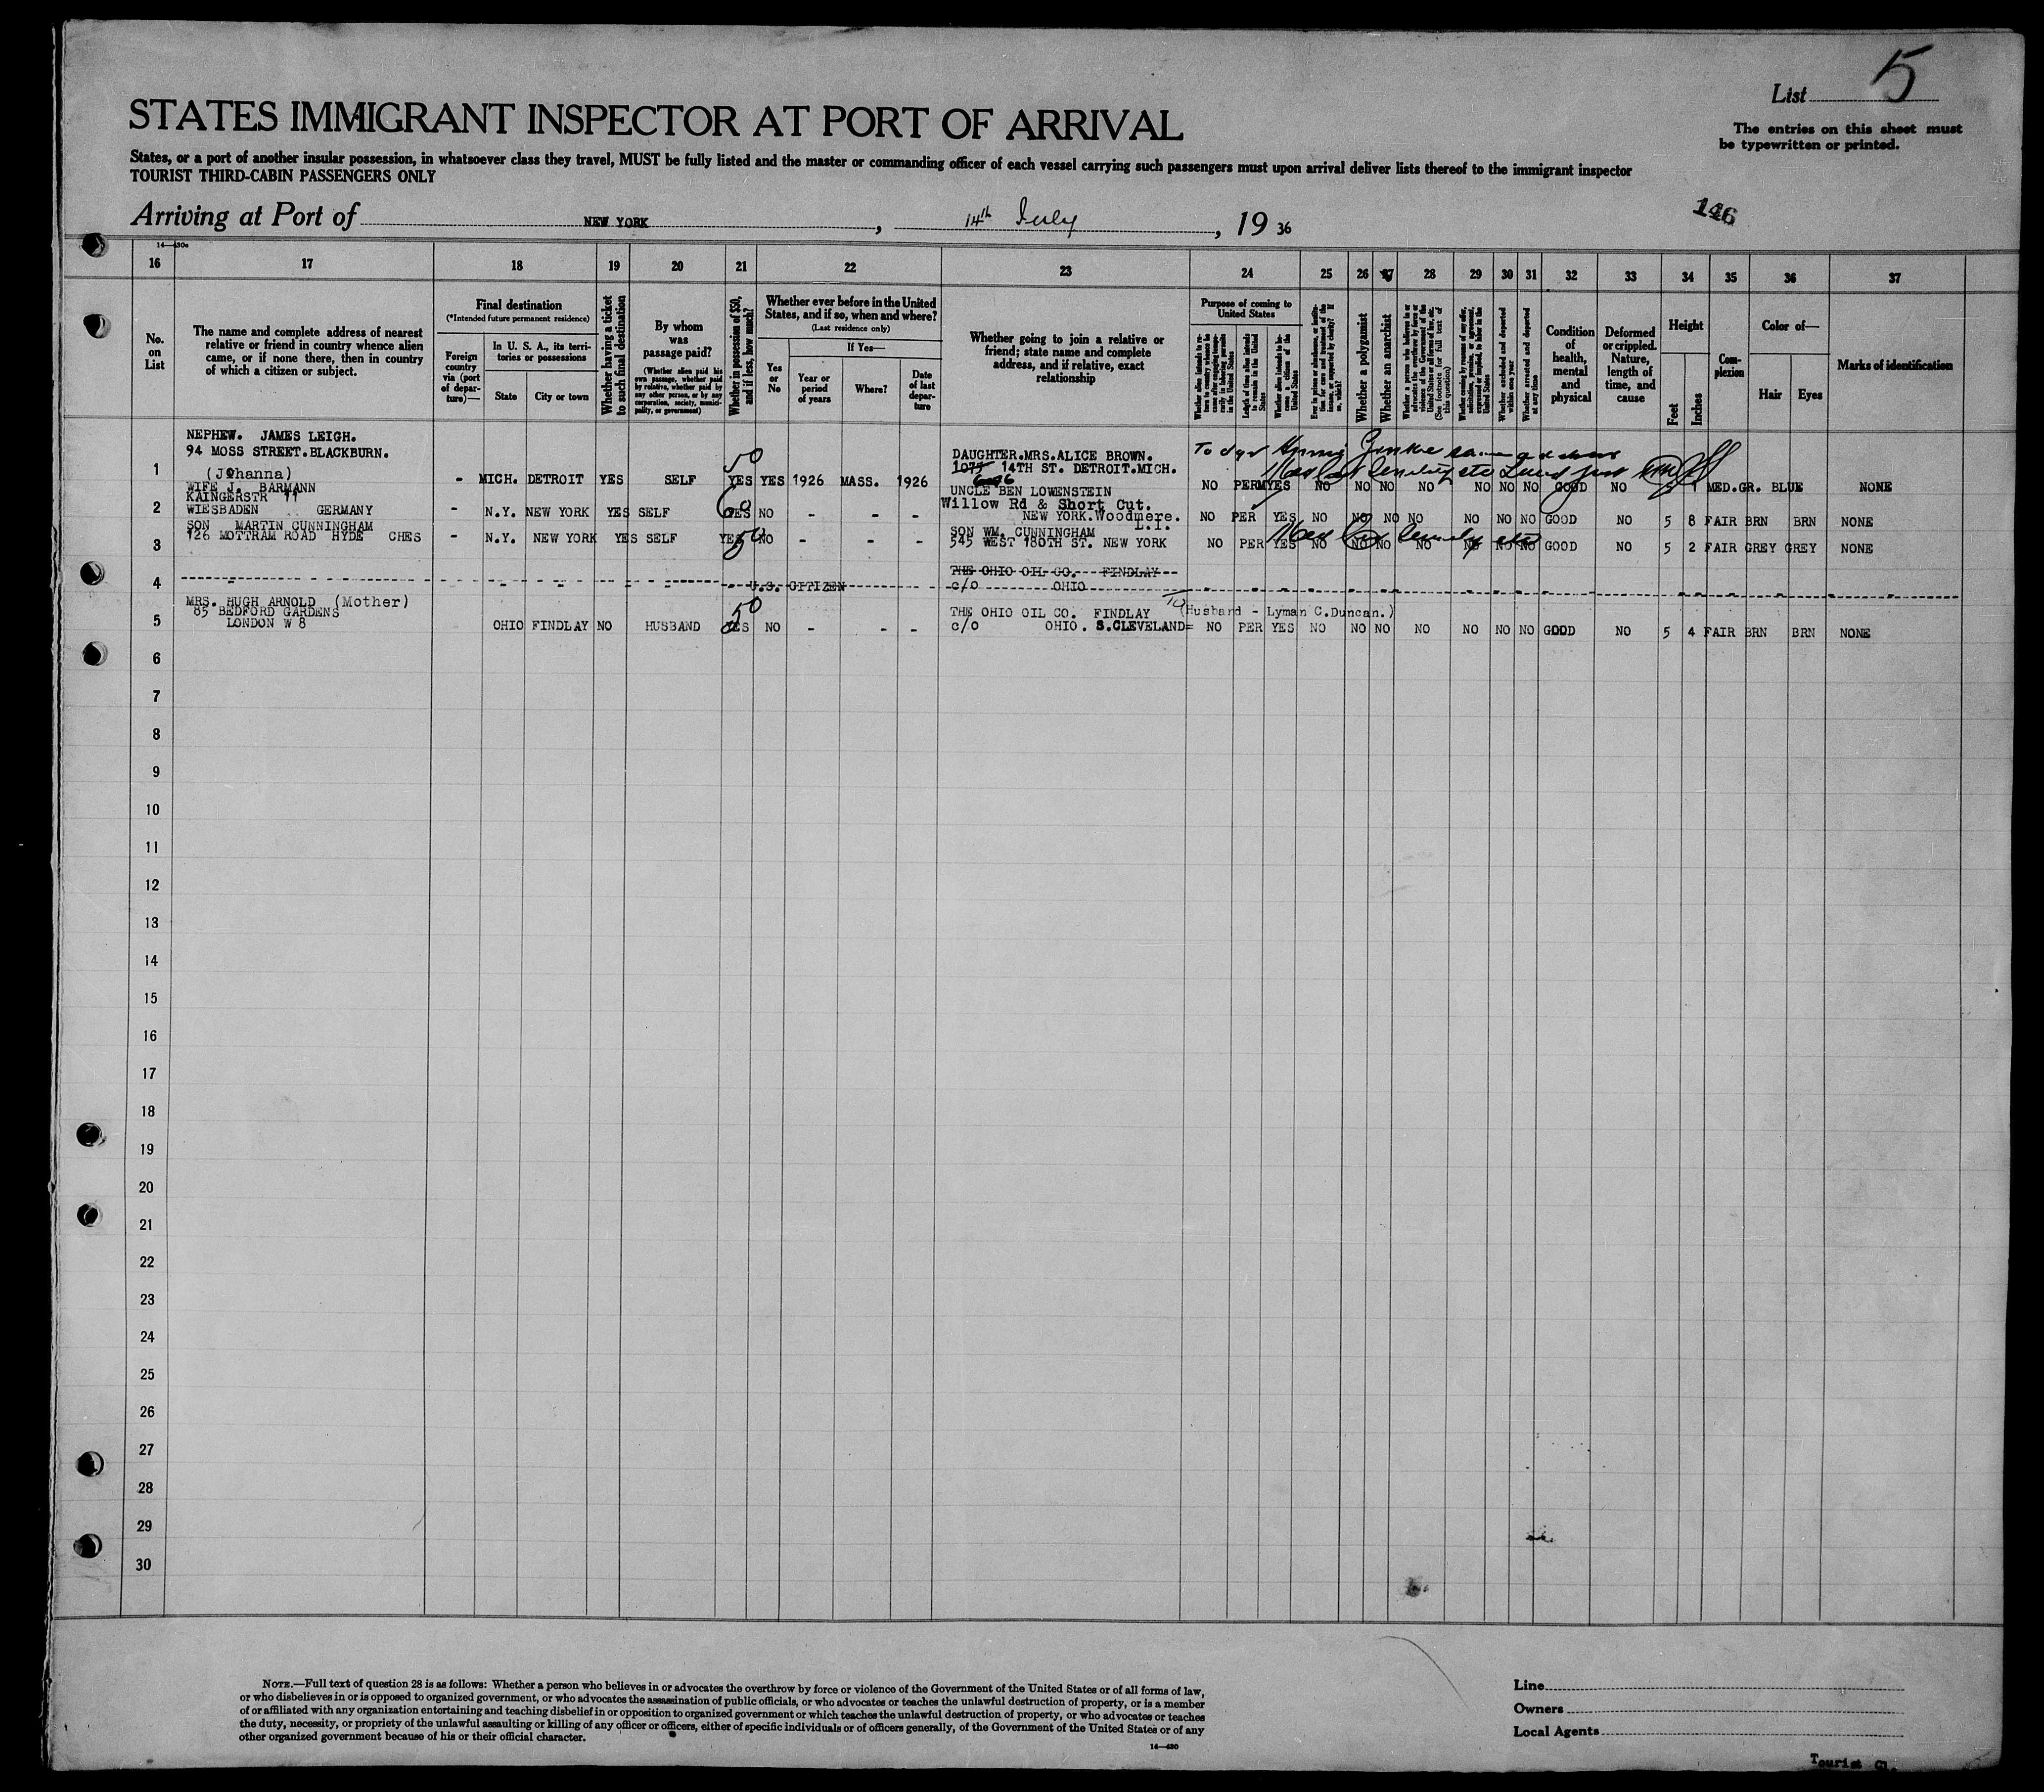 List 5
STATES IMMIGRANT INSPECTOR AT PORT OF ARRIVAL
The entries on this sheet must
be typewritten or printed.
States, or a port of another insular possession, in whatsoever class they travel, MUST be fully listed and the master or commanding officer of each vessel carrying such passengers must upon arrival deliver lists thereof to the immigrant inspector
TOURIST THIRD-CABIN PASSENGERS ONLY
Arriving at Port of NEW YORK, 14th July, 19 36
146
16 17 18 19 20 21 22 23 24 25 26 27 28 29 30 31 32 33 34 35 36 37
No. on List
The name and complete address of nearest relative or friend in country whence alien came, or if none there, then in country of which a citizen or subject.
Final destination
(*Intended future permanent residence)
Foreign country via (port of departure)—
In U. S. A., its territories or possessions
State
City or town
Whether having a ticket to such final destination
By whom was passage paid?
(Whether alien paid his own passage, whether paid by relative, whether paid by any other person, or by any corporation, society, municipality, or government)
Whether in possession of $50, and if less, how much?
Whether ever before in the United States, and if so, when and where?
(Last residence only)
Yes or No
If Yes—
Year or period of years
Where?
Date of last departure
Whether going to join a relative or friend; state name and complete address, and if relative, exact relationship
Purpose of coming to United States
Length of time alien intends to remain in the United States
Whether alien intends to become a citizen of the United States
Whether a polygamist
Whether an anarchist
(See footnote for full text of this question)
Whether excluded and deported within one year
Whether arrested and deported at any time
Condition of health, mental and physical
Deformed or crippled. Nature, length of time, and cause
Height
Feet
Inches
Complexion
Color of—
Hair
Eyes
Marks of identification
NEPHEW. JAMES LEIGH.
94 MOSS STREET.BLACKBURN.
DAUGHTER.MRS.ALICE BROWN.
1075 14TH ST. DETROIT.MICH.
1 - MICH. DETROIT YES SELF YES 50 YES 1926 MASS. 1926 NO PERM YES NO NO NO NO NO NO NO GOOD NO 5 1 MED. GR. BLUE NONE
(Johanna)
WIFE J. BARMANN
KAINGERSTR 11
UNCLE BEN LOWENSTEIN
Willow Rd & Short Cut.
2 WIESBADEN GERMANY - N.Y. NEW YORK YES SELF YES 60 NO - - - NEW YORK.Woodmere. L.I. NO PER YES NO NO NO NO NO NO NO GOOD NO 5 8 FAIR BRN BRN NONE
SON MARTIN CUNNINGHAM
SON WM. CUNNINGHAM
3 126 MOTTRAM ROAD HYDE CHES - N.Y. NEW YORK YES SELF YES 50 NO - - - 545 WEST 180TH ST. NEW YORK NO PER YES NO NO NO NO NO NO NO GOOD NO 5 2 FAIR GREY GREY NONE
THE OHIO OIL CO. FINDLAY
4 - - - - - U.S. CITIZEN c/o OHIO
MRS. HUGH ARNOLD (Mother)
85 BEDFORD GARDENS
THE OHIO OIL CO. FINDLAY (Husband - Lyman C.Duncan.)
5 LONDON W 8 OHIO FINDLAY NO HUSBAND YES 50 NO - - - c/o OHIO. S.CLEVELAND= NO PER YES NO NO NO NO NO NO NO GOOD NO 5 4 FAIR BRN BRN NONE
6
7
8
9
10
11
12
13
14
15
16
17
18
19
20
21
22
23
24
25
26
27
28
29
30
NOTE.—Full text of question 28 is as follows: Whether a person who believes in or advocates the overthrow by force or violence of the Government of the United States or of all forms of law,
or who disbelieves in or is opposed to organized government, or who advocates the assassination of public officials, or who advocates or teaches the unlawful destruction of property, or is a member
of or affiliated with any organization entertaining and teaching disbelief in or opposition to organized government or which teaches the unlawful destruction of property, or who advocates or teaches
the duty, necessity, or propriety of the unlawful assaulting or killing of any officer or officers, either of specific individuals or of officers generally, of the Government of the United States or of any
other organized government because of his or their official character.
14—430
Line
Owners
Local Agents
Tourist Cl.